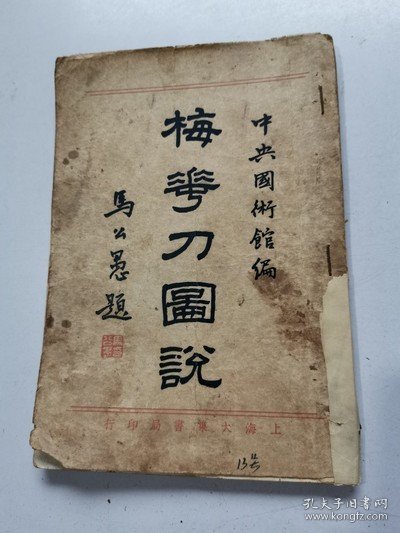 中央國術館編
梅華刀圖說
馬公愚題
上海大東書局印行
孔夫子旧书网
www.kongfz.com